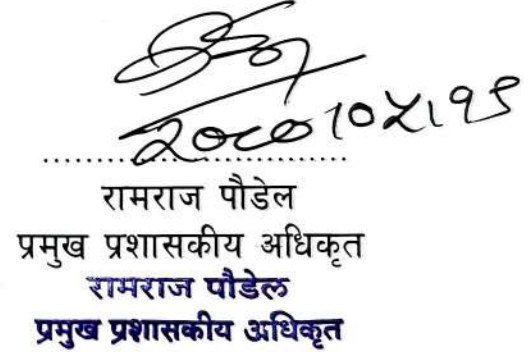 २०८०।०५।१९
.................................
रामराज पौडेल
प्रमुख प्रशासकीय अधिकृत
रामराज पौडेल
प्रमुख प्रशासकीय अधिकृत